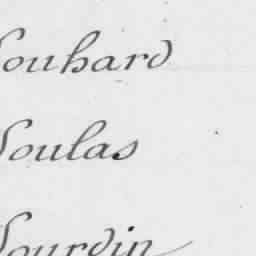 Souhard
Soulas
Sourdin